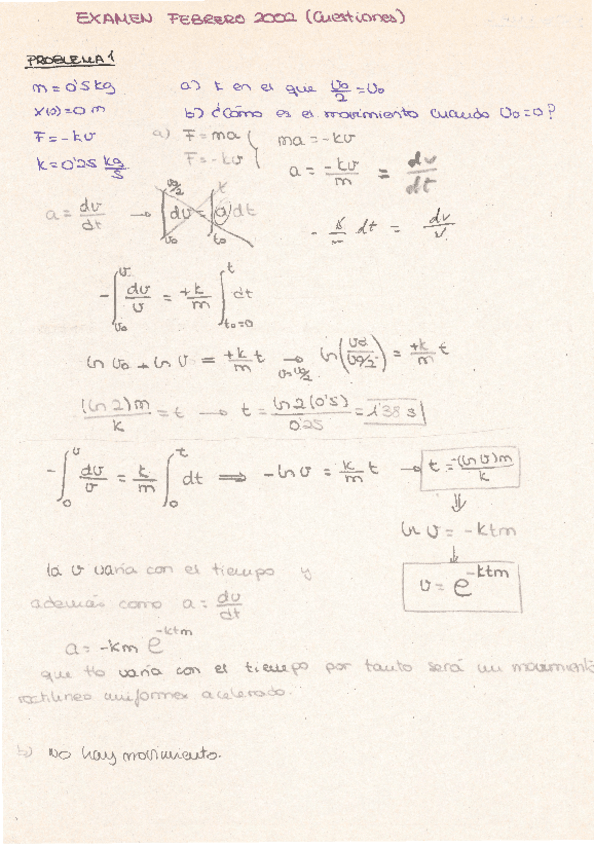 EXAMEN FEBRERO 2002 (Cuestiones)
PROBLEMA 1
m = 0'5 kg
a) t en el que v₀/2 = v₀
x(0) = 0 m
b) ¿Cómo es el movimiento cuando v₀ = 0?
F = -kv
a) F = ma
ma = -kv
k = 0'25 kg/s
F = -kv
a = -kv/m = dv/dt
a = dv/dt → ∫_{v₀}^{v₀/2} dv = ∫_{t₀}^{t} a dt
- k/m dt = dv/v
-∫_{v₀}^{v} dv/v = +k/m ∫_{t₀=0}^{t} dt
ln v₀ - ln v = +k/m t → ln(v₀/v₀/2) = +k/m t
v = v₀/2
(ln 2)m/k = t → t = ln 2 (0'5)/0'25 = 1'38 s
-∫_{0}^{v} dv/v = k/m ∫_{0}^{t} dt ⇒ -ln v = k/m t → t = -(ln v)m/k
⇓
ln v = -ktm
↓
v = e^{-ktm}
la v varía con el tiempo y
además como a = dv/dt
a = -km e^{-ktm}
que varía con el tiempo por tanto será un movimiento
rectilíneo uniformex acelerado.
b) No hay movimiento.